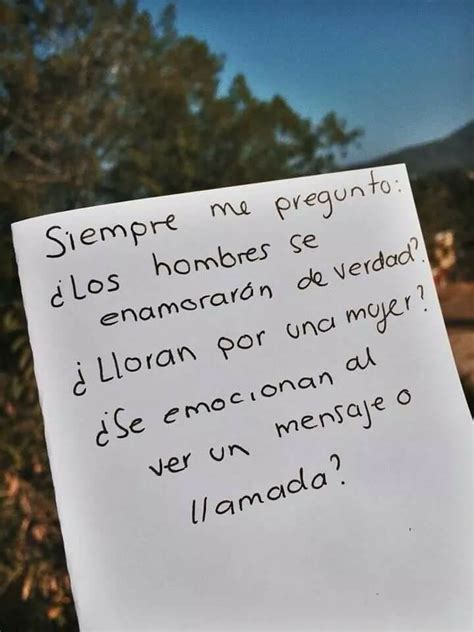 Siempre me pregunto:
¿Los hombres se
enamorarán de verdad?
¿Lloran por una mujer?
¿Se emocionan al
ver un mensaje o
llamada?